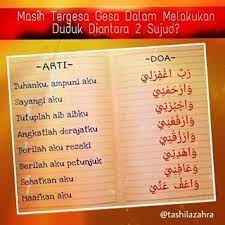 Masih Tergesa Gesa Dalam Melakukan
Duduk Diantara 2 Sujud?
~ARTI~
Tuhanku, ampuni aku
Sayangi aku
Tutuplah aib aibku
Angkatlah derajatku
Berilah aku rezeki
Berilah aku petunjuk
Sehatkan aku
Maafkan aku
~DOA~
رَبِّ اغْفِرْلِيْ
وَارْحَمْنِيْ
وَاجْبُرْنِيْ
وَارْفَعْنِيْ
وَارْزُقْنِيْ
وَاهْدِنِيْ
وَعَافِنِيْ
وَاعْفُ عَنِّيْ
@tashilazahra